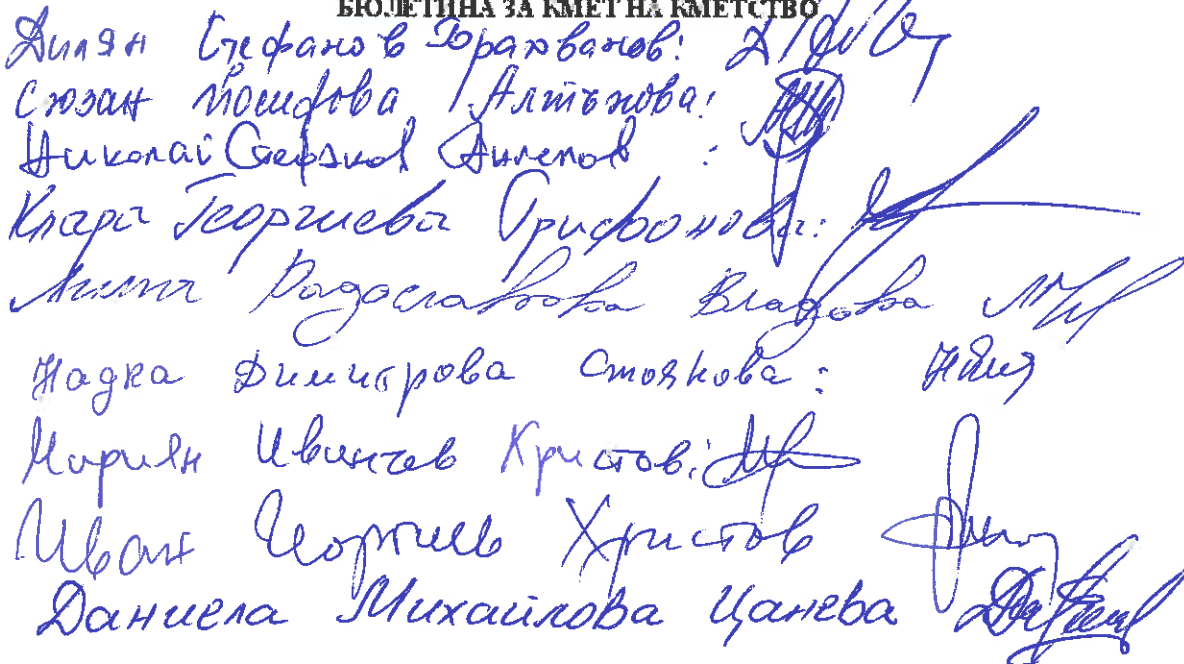 БЮЛЕТИНА ЗА КМЕТ НА КМЕТСТВО
Дилян Стефанов
Сюзан Йосифова Алтънова:
Николай Стефанов Ангелов :
Клара Георгиева Трифонова:
Радославова Владова
Надка Димитрова Стоянова:
Мариян Иванчев Христов:
Иван Георгиев Христов
Даниела Михайлова Цанева